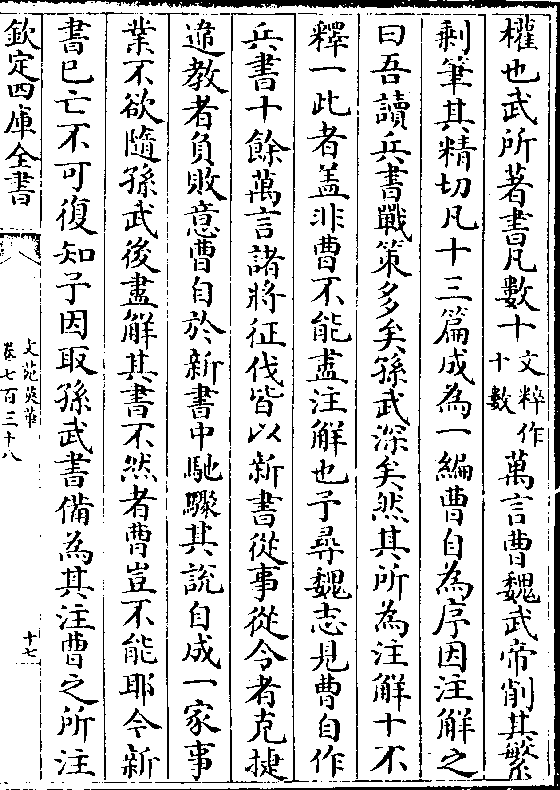 櫂也武所著書凡數十文粹作十數萬言曹魏武帝削其繁
剰筆其精切凡十三篇成為一編曹自為序因注解之
曰吾讀兵書戰策多矣孫武深矣然其所為注解十不
釋一此者盖非曹不能盡注解也予尋魏志見曹自作
兵書十餘萬言諸將征伐皆以新書從事從令者克捷
違教者負敗意曹自於新書中馳驟其說自成一家事
業不欲隨孫武後盡解其書不然者曹豈不能耶今新
書已亡不可復知予因取孫武書備為其注曹之所注
欽定四庫全書
文苑英華
卷七百三十八
十七